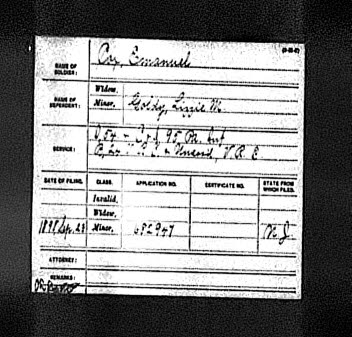 Cox, Emanuel
NAME OF SOLDIER:
NAME OF DEPENDENT:
Widow,
Minor, Goldy, Lizzie M.
SERVICE:
95 Pa. Inf
V. R. C.
DATE OF FILING. CLASS. APPLICATION NO. CERTIFICATE NO. STATE FROM WHICH FILED.
Invalid,
Widow,
1898 Sep. 28 Minor, 682947 N. J.
ATTORNEY:
REMARKS: